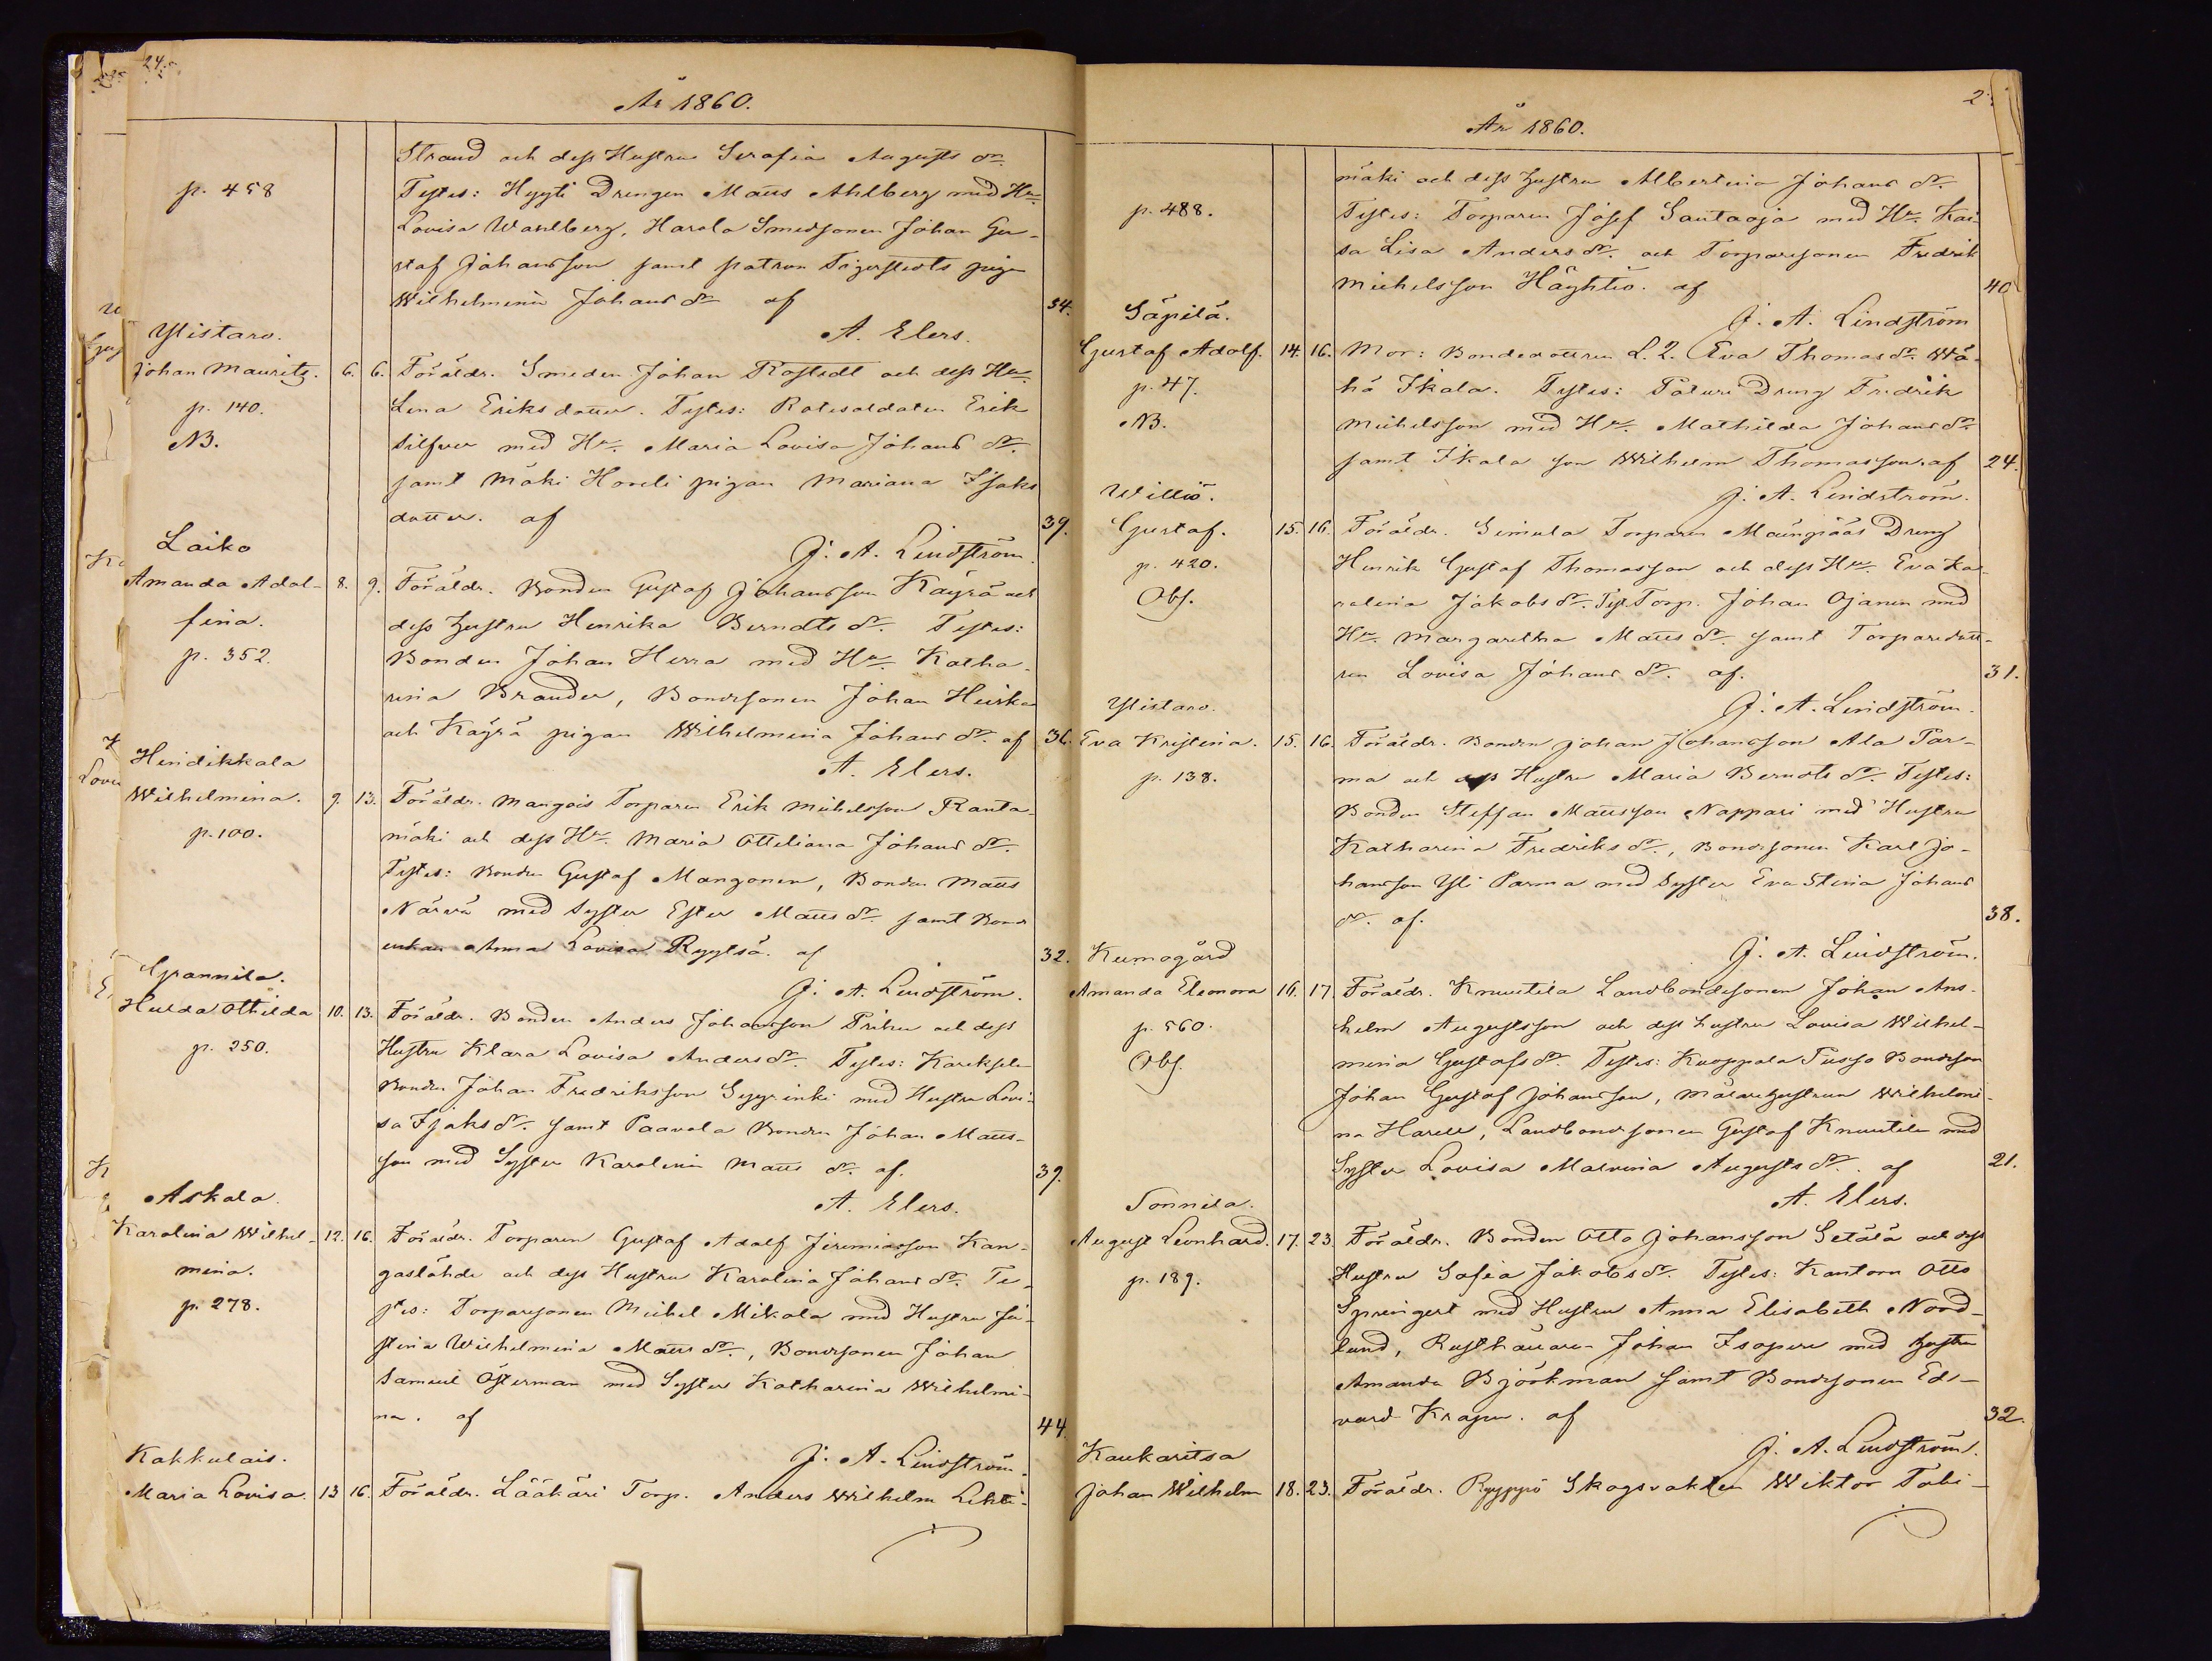 24.
År 1860.
Strand och dess Hustru Serafia Augusts dr.
p. 458
Testes: Hyyti Drengen Matts Ahlberg med Hu.
Lovisa Wahlberg, Harola Smedsonen Johan Gu-
staf Johansson samt patron Tigerstedts piga
Wilhelmina Johans dr. af 34.
A. Elers.
Ylistaro.
Johan Mauritz. 6. 6. Föräldr. Smeden Johan Rostedt och dess Hu.
p. 140.
Lena Eriksdotter. Testes: Rotesoldaten Erik
NB.
Silfver med Hu. Maria Lovisa Johans dr.
samt Mäki Honeli pigan Mariana Isaks
dotter. af 39.
J. A. Lindström.
Laiko
Amanda Adol- 8. 9. Föräldr. Bonden Gustaf Johansson Käyrä och
fina.
dess hustru Henrika Berndts dr. Testes:
p. 352.
Bonden Johan Herra med Hu. Katha-
rina Brander, Bondsonen Johan Heiska
och Käyrä pigan Wilhelmina Johans dr. af 36.
A. Elers.
Hindikkala
Wilhelmina. 9. 13. Föräldr. Mangois Torparen Erik Michelsson Ranta-
p. 100.
mäki och dess Hu. Maria Otteliana Johans dr.
Testes: Bonden Gustaf Mangonen, Bonden Matts
Närvä med Syster Ester Matts dr. samt Bond
enkan Anna Lovisa Ryytsä. af 32.
J. A. Lindström.
Spannila.
Hulda Othilda 10. 13. Föräldr. Bonden Anders Johansson Prihu och dess
p. 250.
Hustru Klara Lovisa Anders dr. Testes: Kareksela
Bonden Johan Fredriksson Syyrinki med Hustru Lovi-
sa Isaks dr. samt Paavola Bonden Johan Matts-
son med Syster Karolina Matts dr. af. 39.
A. Elers.
Askala.
Karolina Wilhel- 12. 16. Föräldr. Torparen Gustaf Adolf Jeremiasson Kan-
mina.
gaslähde och dess Hustru Karolina Johans dr. Te-
p. 278.
stes: Torparesonen Michel Mikola med Hustru Ju-
stina Wilhelmina Matts dr., Bondsonen Johan
Samuel Österman med Syster Katharina Wilhelmi-
na. af 44.
J. A. Lindström.
Kakkulais.
Maria Lovisa. 13 16. Föräldr. Lääkäri Torp. Anders Wilhelm Lehti-
År 1860.
mäki och dess hustru Albertina Johans dr.
p. 488.
Testes: Torparen Josef Santaoja med Hu. Kai-
sa Lisa Anders dr. och Torparesonen Fredrik
Michelsson Häyhtiö. af 40
J. A. Lindström
Säpilä.
Gustaf Adolf. 14. 16. Mor: Bondedottren L. 2. Eva Thomas dr. Wä-
p. 47.
hä Ikala. Testes: Paturi Dreng Fredrik
NB.
Michelsson med Hu. Mathilda Johans dr.
samt Ikala son Wilhelm Thomasson. af 24.
J. A. Lindström.
Williö.
Gustaf. 15. 16. Föräldr. Simula Torparen Maunpääs Dreng
p. 420.
Henrik Gustaf Thomasson och dess Hu. Eva Ka-
Obs.
rolina Jakobs dr. Test. Torp. Johan Ojanen med
Hu. Margaretha Matts dr. samt Torparedott-
ren Lovisa Johans dr. af. 31.
J. A. Lindström.
Ylistaro.
Eva Kristina. 15. 16. Föräldr. Bonden Johan Johansson Ala Par-
p. 138.
ma och dess Hustru Maria Berndts dr. Testes:
Bonden Steffan Mattsson Nappari med Hustru
Katharina Fredriks dr., Bondsonen Karl Jo-
hansson Yli Parma med Syster Eva Stina Johans
dr. af. 38.
J. A. Lindström.
Kumogård
Amanda Eleonora 16. 17. Föräldr. Knuutila Landbondesonen Johan Ans-
p. 560.
helm Augustsson och dess hustru Lovisa Wilhel-
Obs.
mina Gustafs dr. Testes: Kuoppala Pusso Bondson
Johan Gustaf Johansson, Målarehustrun Wilhelmi-
na Harell, Landbondsonen Gustaf Knuutila med
Syster Lovisa Malvina Augusts dr. af 21.
A. Elers.
Sonnila.
August Leonhard. 17. 23. Föräldr. Bonden Otto Johansson Setälä och dess
p. 189.
Hustru Sofia Jakobs dr. Testes: Kantorn Otto
Springert med Hustru Anna Elisabeth Nord-
lund, Rusthållaren Johan Isoperi med hustru
Amanda Björkman samt Bondsonen Ed-
vard Krapu. af 32.
J. A. Lindström.
Kaukaritsa
Johan Wilhelm 18. 23. Föräldr. Ryyppö Skogsvakten Wiktor Tobi-